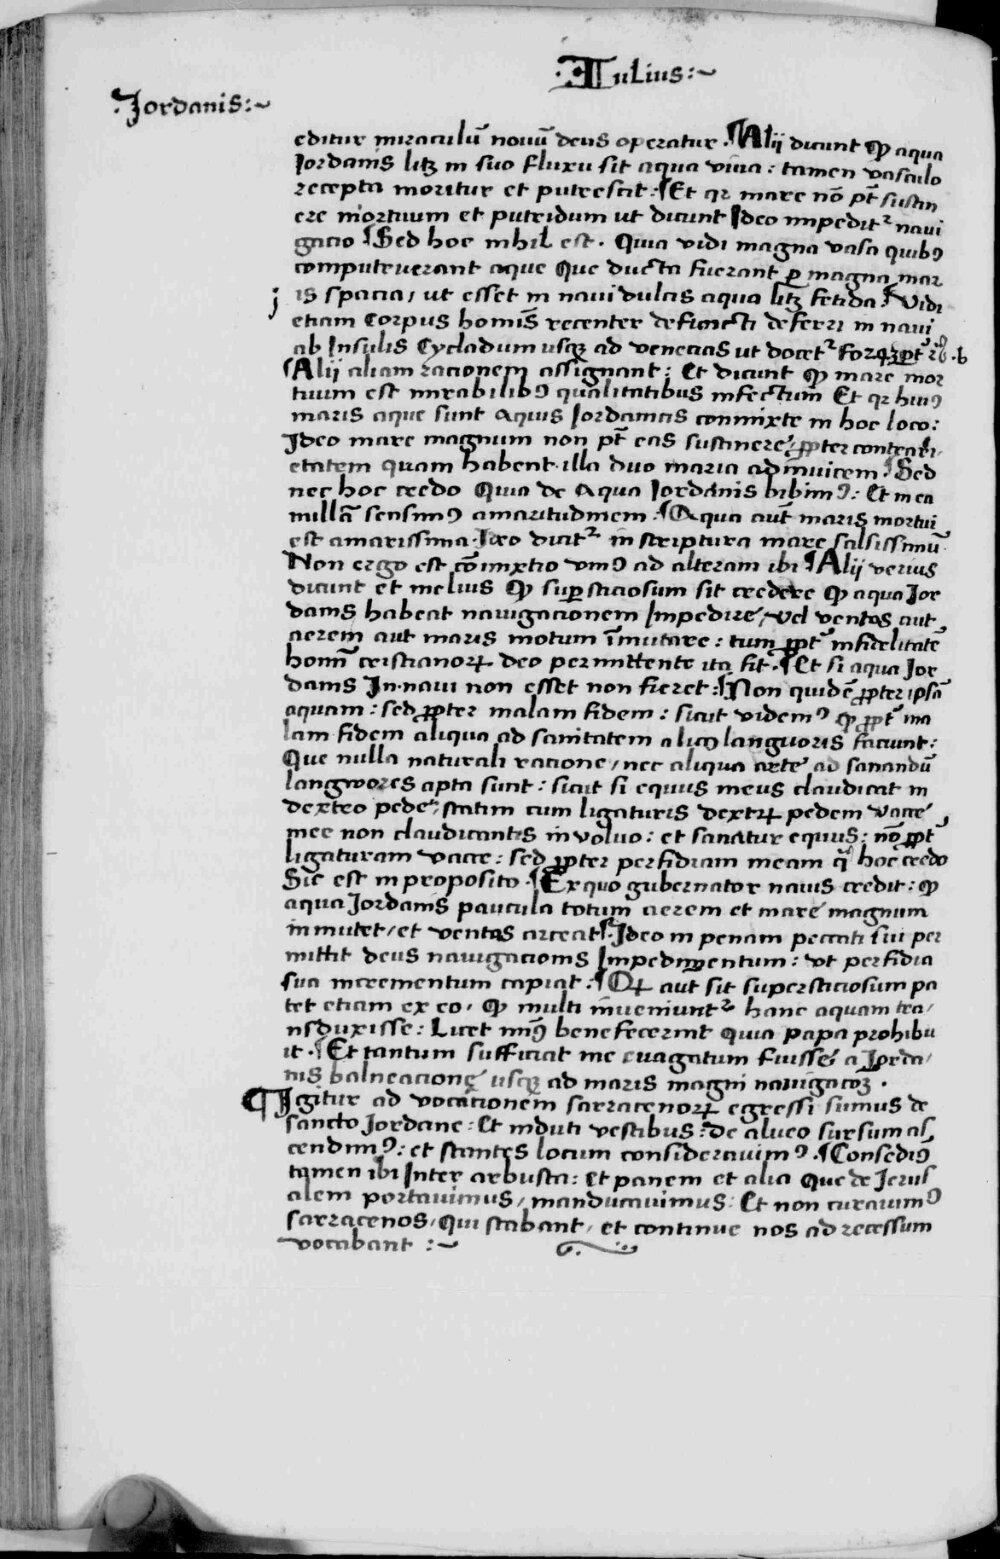 Iulius:~
Jordanis:~
editur miraculū nouū deus operatur. ¶Alij dicunt ꝙ aqua
Jordanis litꝫ in suo fluxu sit aqua viua: tamen vasculo
recepta moritur et putrescit: ¶Et qr mare nō pt̄ sustin
ere mortuum et putridum ut dicunt Ideo impeditr navi
gacio ¶Sed hoc nihil est. Quia vidi magna vasa quibꝰ
computruerant aque que ducta fuerant ꝑ magna mar
is spacia, ut esset in naui dulcis aqua litꝫ fetida: ¶Vidi
etiam Corpus homīs recenter defuncti deferri in naui
ab Insulis Cycladum usqꝫ ad venecias ut docetr
¶Alij aliam racionem assignant: Et dicunt ꝙ mare mor
tuum est mirabilibꝰ qualitatibus infectum Et qr huiꝰ
maris aque sunt aquis Jordanicis conmixte in hoc loco:
Ideo mare magnum non pt̄ eas sustinere, ꝓpter contrari,
etatem quam habent illa duo maria adinuicem: ¶Sed
nec hoc credo Quia de aqua Jordanis bibimꝰ: Et in ea
nullā sensimꝰ amaritudinem: ¶Aqua aut̄ maris mortui
est amarissima. Ideo dicitr in scriptura mare salsissimū.
Non ergo est cōmixtio vniꝰ ad alteram ibi ¶Alij verius
dicunt et melius ꝙ supersticiosum sit credere ꝙ aqua Jor
danis habeat nauigacionem Impedire, vel ventos aut,
aerem aut maris motum īmutare: tum ꝓpt̄ infidelitatē
homī cristianorꝝ deo permittente ita fit. ¶Et si aqua Jor
danis In naui non esset non fieret: ¶Non quidē ꝓpter ipsā
aquam: sed ꝓpter malam fidem: sicut videmꝰ ꝙ ꝓpt̄ ma
lam fidem aliqua ad sanitatem alicꝰ languoris faciunt:
Que nulla naturali racione, nec aliqua arte ad sanandū
langwores apta sunt: sicut si equus meus claudicat in
dextro pede, statim cum ligaturis dextrꝝ pedem vacce,
mee non claudicantis involuo: et sanatur equus: nō ꝓpt̄
ligaturam vacce: sed ꝓpter perfidiam meam q̄ hoc credo
Sic est in proposito. ¶Ex quo gubernator nauis credit: ꝙ
aqua Jordanis paucula totum aerem et mare magnum
inmutet, et ventos arceat: ¶Ideo in penam peccati sui per
mittit deus nauigacionis Impedimentum: vt perfidia
sua incrementum capiat: ¶Qꝝ aut̄ sit supersticiosum pa
tet etiam ex eo, ꝙ multi inveniuntr hanc aquam tra,
nsduxisse: Licet minꝰ benefecerint quia papa prohibu
it. ¶Et tantum sufficiat me evagatum fuisse a Jorda,
nis balneacione usqꝫ ad maris magni nauigacoꝫ.
¶Igitur ad vocacionem sarracenorꝝ egressi sumus de
sancto Jordane: Et induti vestibus: de alueo sursum as,
cendimꝰ: et stantes locum considerauimꝰ. ¶Consedimꝰ
tamen ibi Inter arbusta: et panem et alia que de Jerus
alem portauimus, manducauimus: Et non curauimꝰ
sarracenos, qui stabant, et continue nos ad recessum
vocabant :~